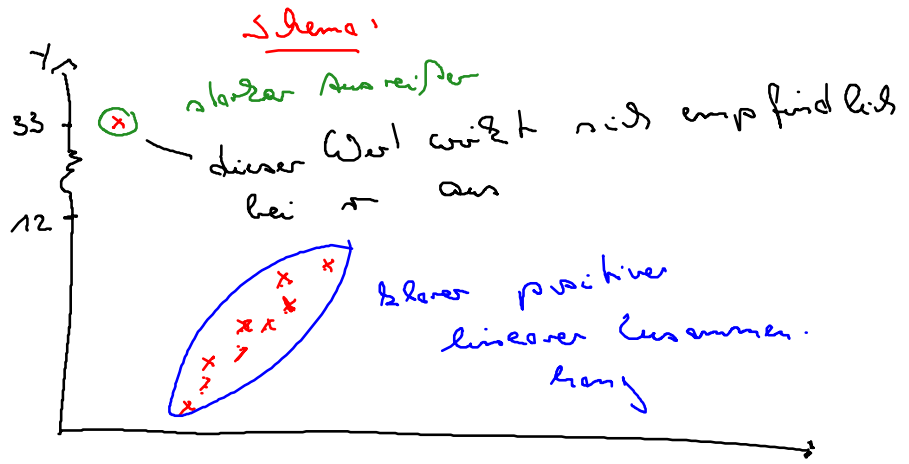 Schema:
Y
starker Ausreißer
33
dieser Wert wirkt sich empfindlich
bei r aus
12
klarer positiver
linearer Zusammen-
hang